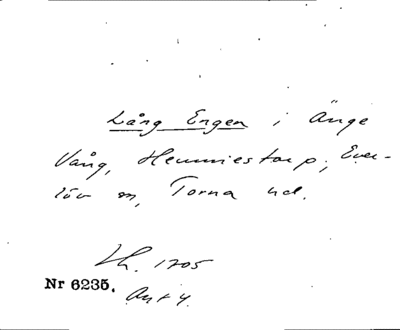 Lång Engen i Änge
Vång, Hemmestorp, Ever-
löv sn, Torna hd.
Lh. 1705
Nr 6235.